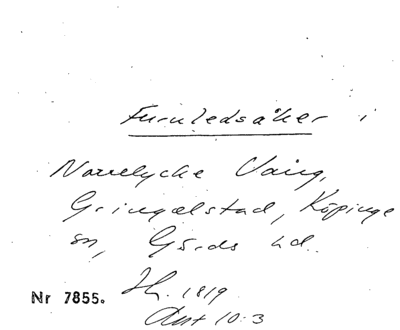 Furuledsåker i
Norrelycke Vång,
Gringelstad, Köpinge
sn, Gärds hd.
Nr 7855. Jh. 1819
Akt 10:3